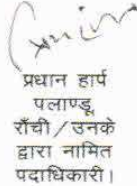 प्रधान हार्प
पलाण्डू
राँची / उनके
द्वारा नामित
पदाधिकारी।